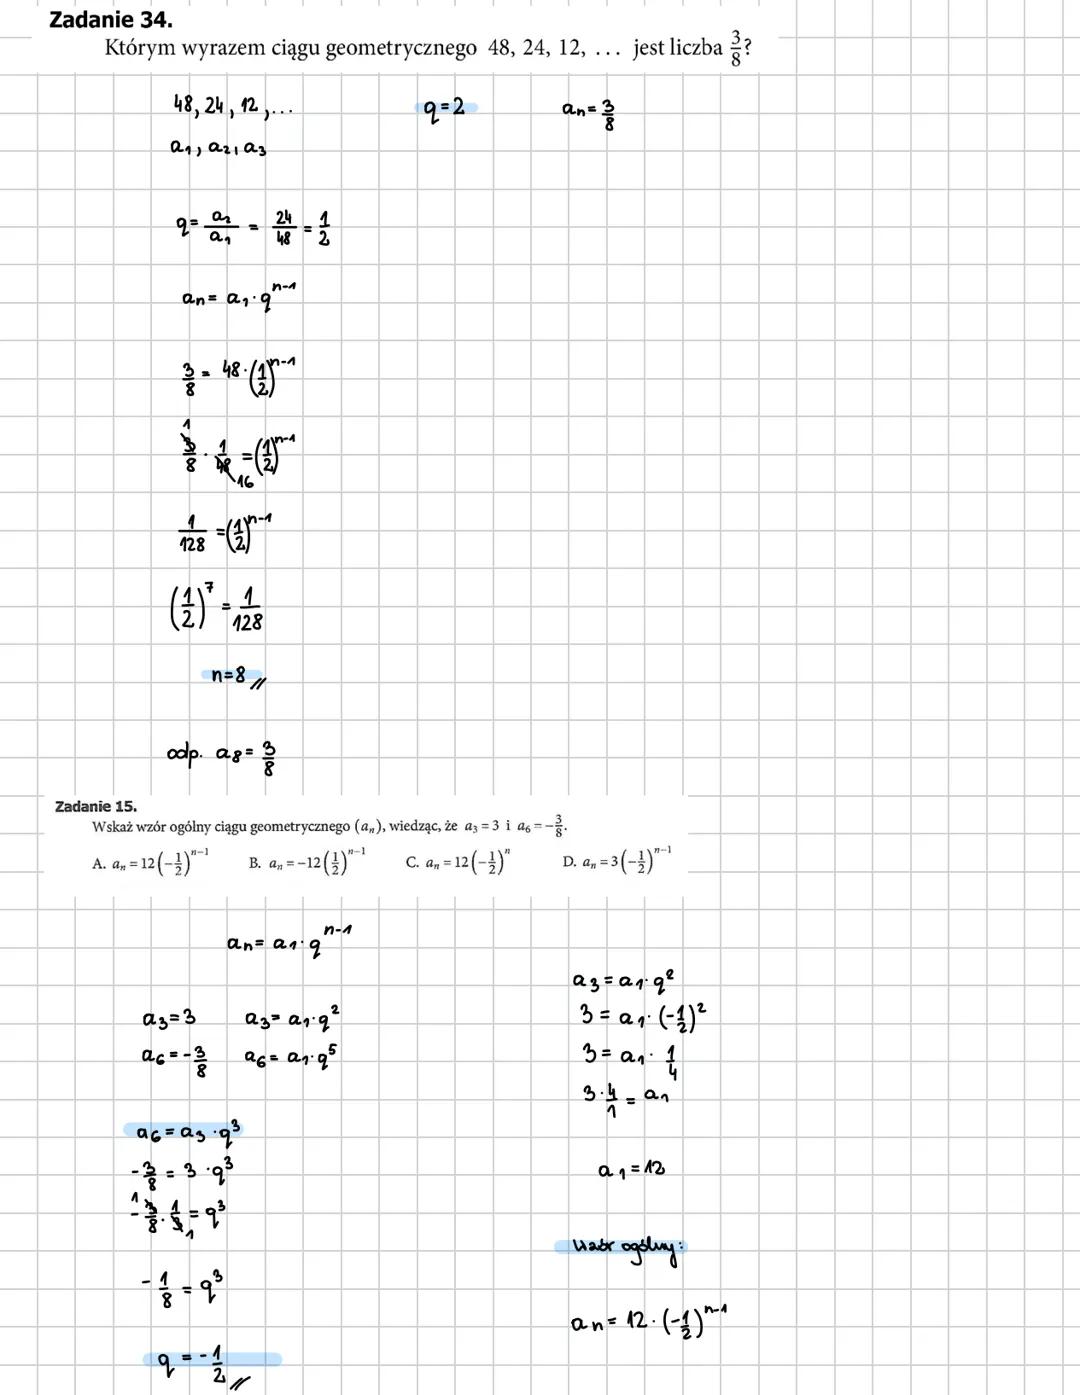 Zadanie 34.
Którym wyrazem ciągu geometrycznego 48, 24, 12, ... jest liczba 3/8?
48, 24, 12, ... q=2 an= 3/8
a₁, a₂, a₃
q= a₂/a₁ = 24/48 = 1/2
an= a₁·q^(n-1)
3/8 = 48·(1/2)^(n-1)
1
3/8 · 1/48 = (1/2)^(n-1)
16
1/128 = (1/2)^(n-1)
(1/2)^7 = 1/128
n=8 //
odp. a₈= 3/8
Zadanie 15.
Wskaż wzór ogólny ciągu geometrycznego (aₙ), wiedząc, że a₃ = 3 i a₆ = -3/8.
A. aₙ = 12(-1/2)^(n-1) B. aₙ = -12(1/2)^(n-1) C. aₙ = 12(-1/2)^n D. aₙ = 3(-1/2)^(n-1)
an= a₁·q^(n-1)
a₃=3 a₃= a₁·q²
a₆=-3/8 a₆= a₁·q⁵
a₆= a₃·q³
-3/8 = 3·q³
1
-3/8 · 1/3 = q³
1
-1/8 = q³
q = -1/2 //
a₃= a₁·q²
3= a₁·(-1/2)²
3= a₁· 1/4
3· 4/1 = a₁
a₁=12
Wzór ogólny:
an= 12·(-1/2)^(n-1)